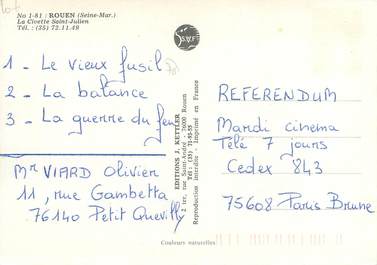 No 1-81 : ROUEN (Seine-Mar.)
La Civette Saint-Julien
Tél. : (35) 72.11.49
1 - Le vieux fusil
2 - La balance
3 - La guerre du feu
Mr VIARD Olivier
11, rue Gambetta
76140 Petit Quevilly
EDITIONS J. KETTLER
2 ter, rue Saint-André - 76000 Rouen
Reproduction interdite - Imprimé en France
REFERENDUM
Mardi cinema
Télé 7 jours
Cedex 843
75608 Paris Brune
Couleurs naturelles